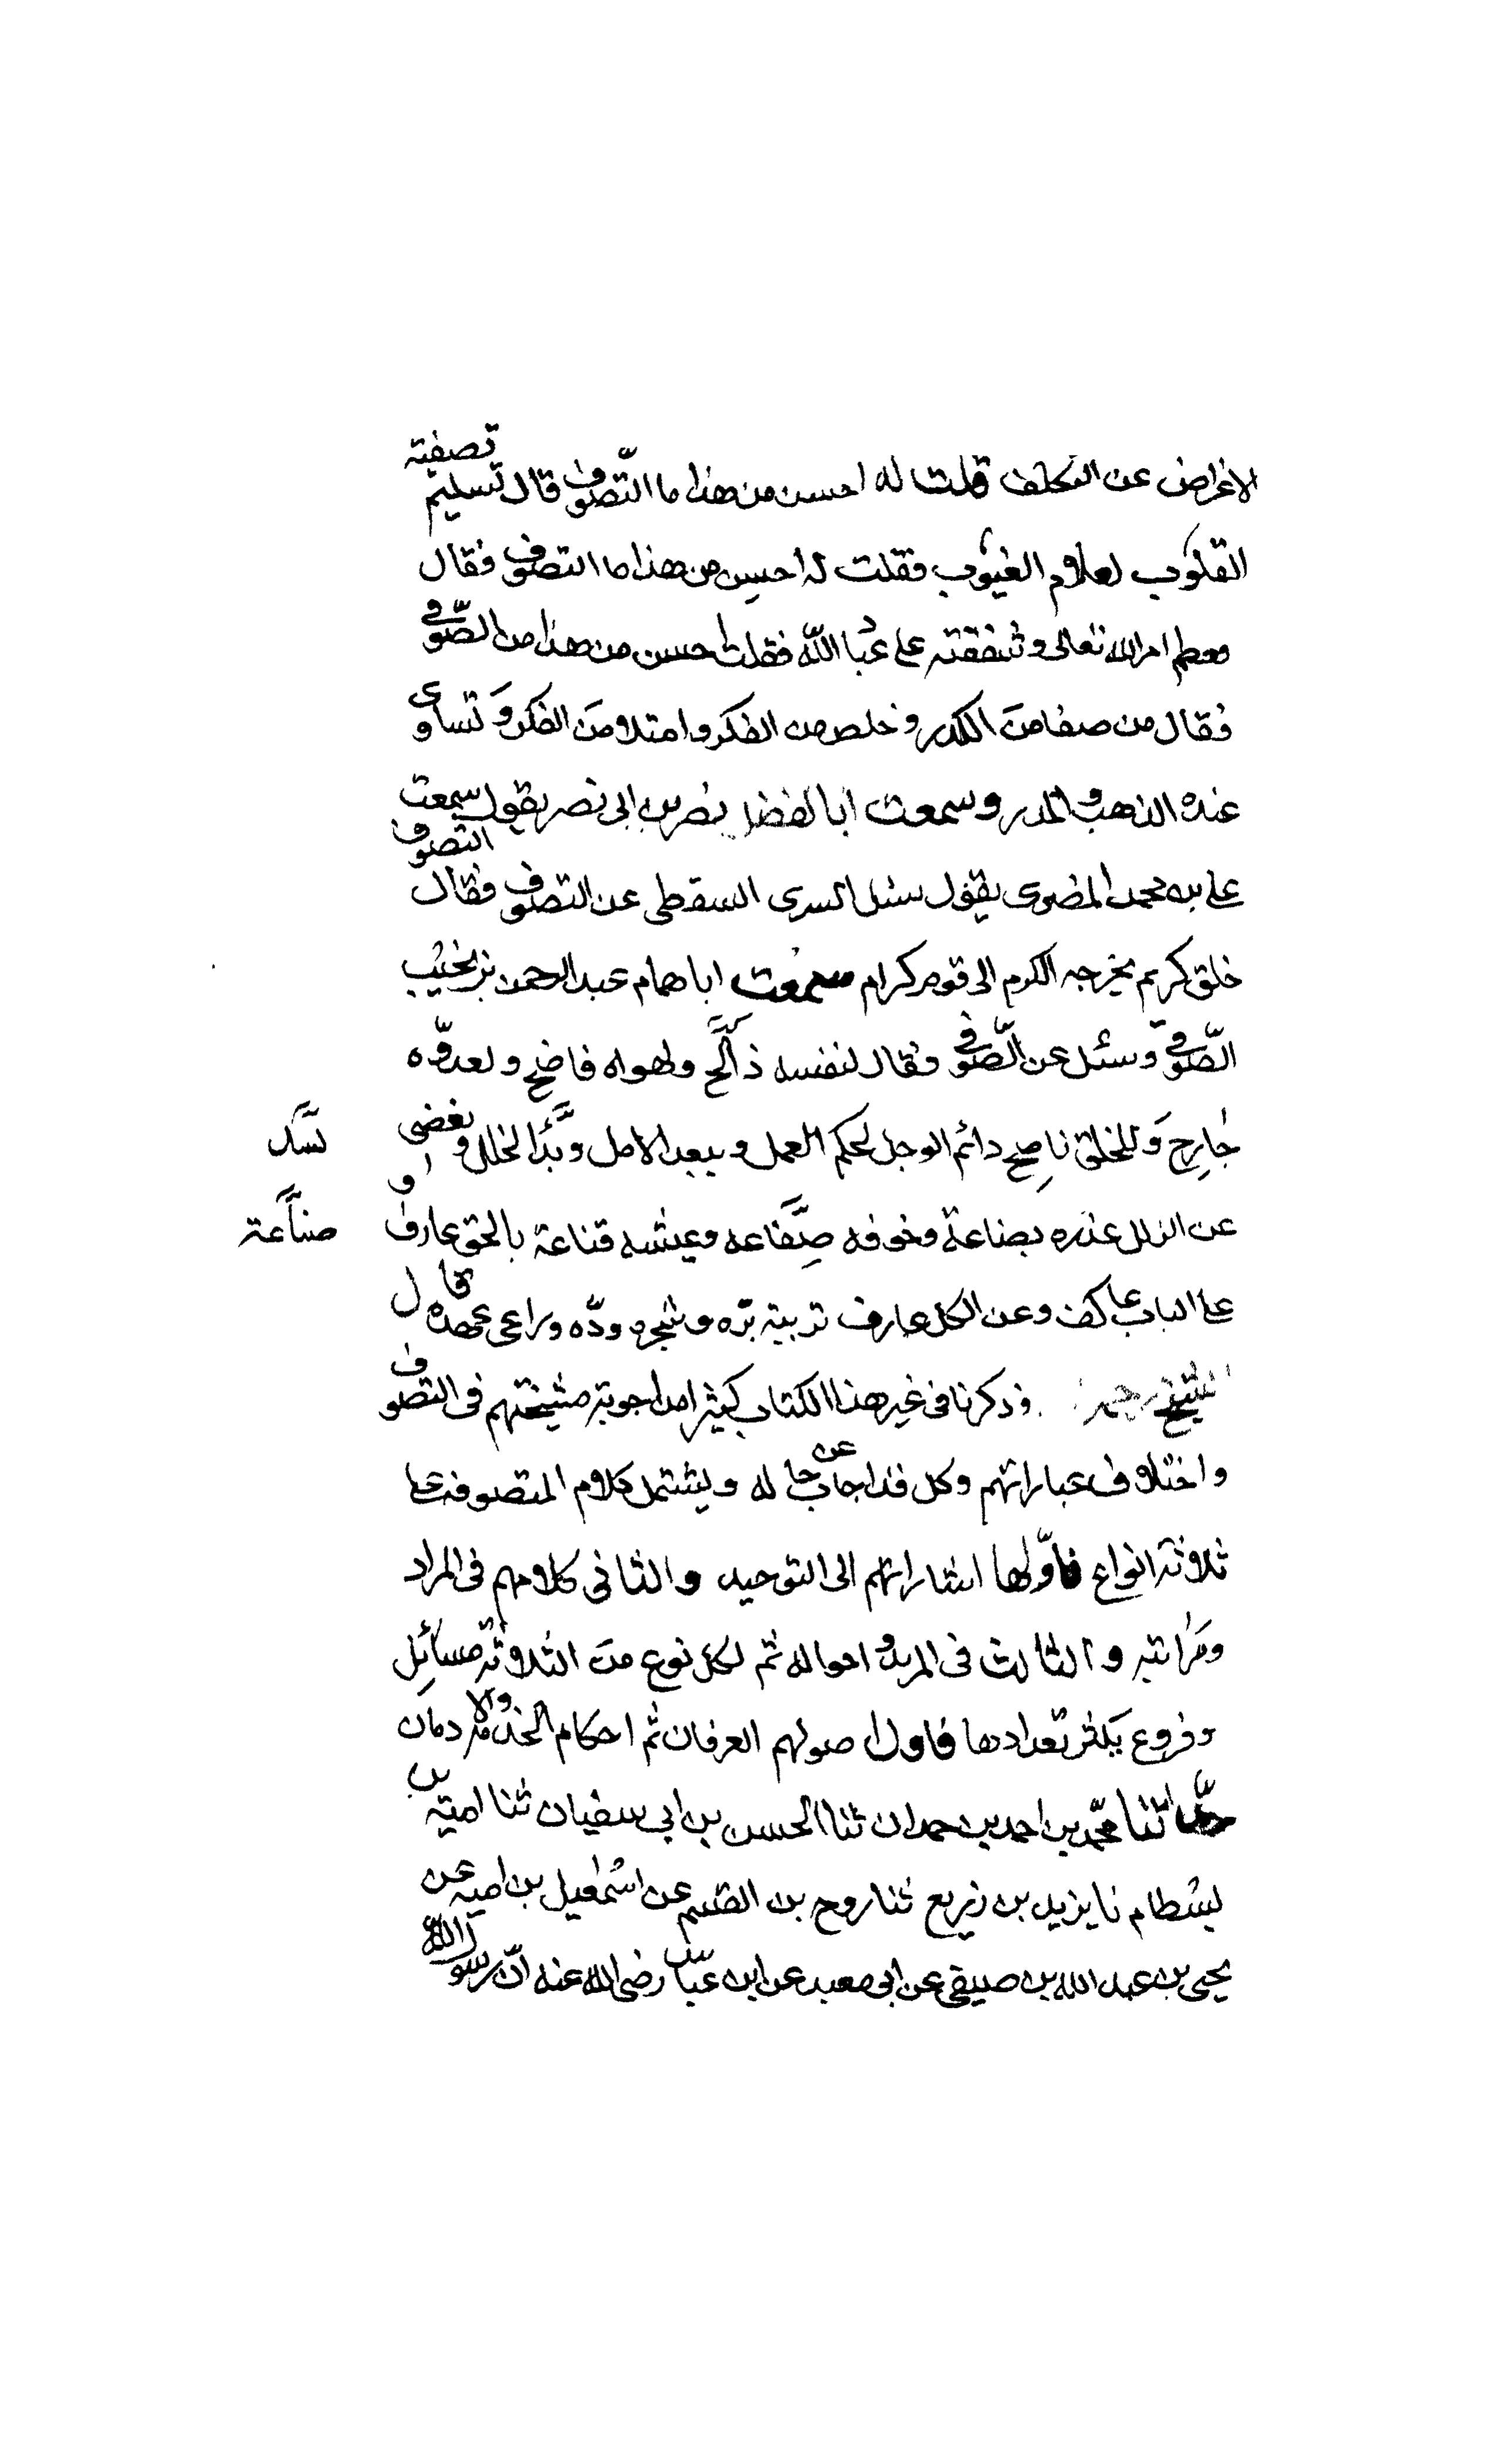 تصفية
الاغراض عن التكلف قلت له احسن من هذا ما التّصوف قال تسليم
القلوب لعلام الغيوب فقلت له احسن من هذا ما التصوف فقال
معظم امر الله تعالى وشفقته على عباد الله فقلت احسن من هذا من الصّوفي
فقال من صفا من الكدر وخلص من الفكر وامتلا من الفكر وتساوى
عنده الذهب والمدر وسمعت ابا الفضل نصر بن ابى نصر يقول سمعت
التصوف
على بن محمد المصرى يقول سئل السرى السقطى عن التصوف فقال
خلق كريم يخرجه الكريم الى قوم كرام سمعت ابا همام عبد الرحمن بن مجيب
الصّوفي وسئل عن الصّوفي فقال لنفسه ذابح ولهواه فاضح ولعدوّه
جارح وللخلق ناصح دائم الوجل يحكم العمل ويبعد الامل ويسد الخلل ويغضى
يسد
عن الزلل عذره بضاعة وخوفه صناعة وعيشه قناعة بالحق عارف و
صناعة
على الباب عاكف وعن الكل عازف تربية برّه وشجره ودّه وراعى عهده قال
الشيخ رحمه وذكرنا فى غير هذا الكتاب كثيرا من اجوبة مشيختهم فى التصوف
واختلاف عباراتهم وكل قد اجاب عن حاله ويشتمل كلام المتصوفة على
ثلاثة انواع فاوّلها اشاراتهم الى التوحيد والثانى كلامهم فى المراد
ومراتبه والثالث فى المريد واحواله ثم لكل نوع من الثلاثة مسائل
وفروع يكثر تعدادها فاول اصولهم العرفان ثم احكام الخدمة والادمان
حدّثنا محمّد بن احمد بن حمدان ثنا الحسن بن ابى سفيان ثنا امية بن
بسطام نا يزيد بن زريع ثنا روح بن القسم عن اسمعيل بن امية عن
يحيى بن عبد الله بن صيفى عن ابى معبد عن ابن عباس رضى الله عنه انّ رسول الله